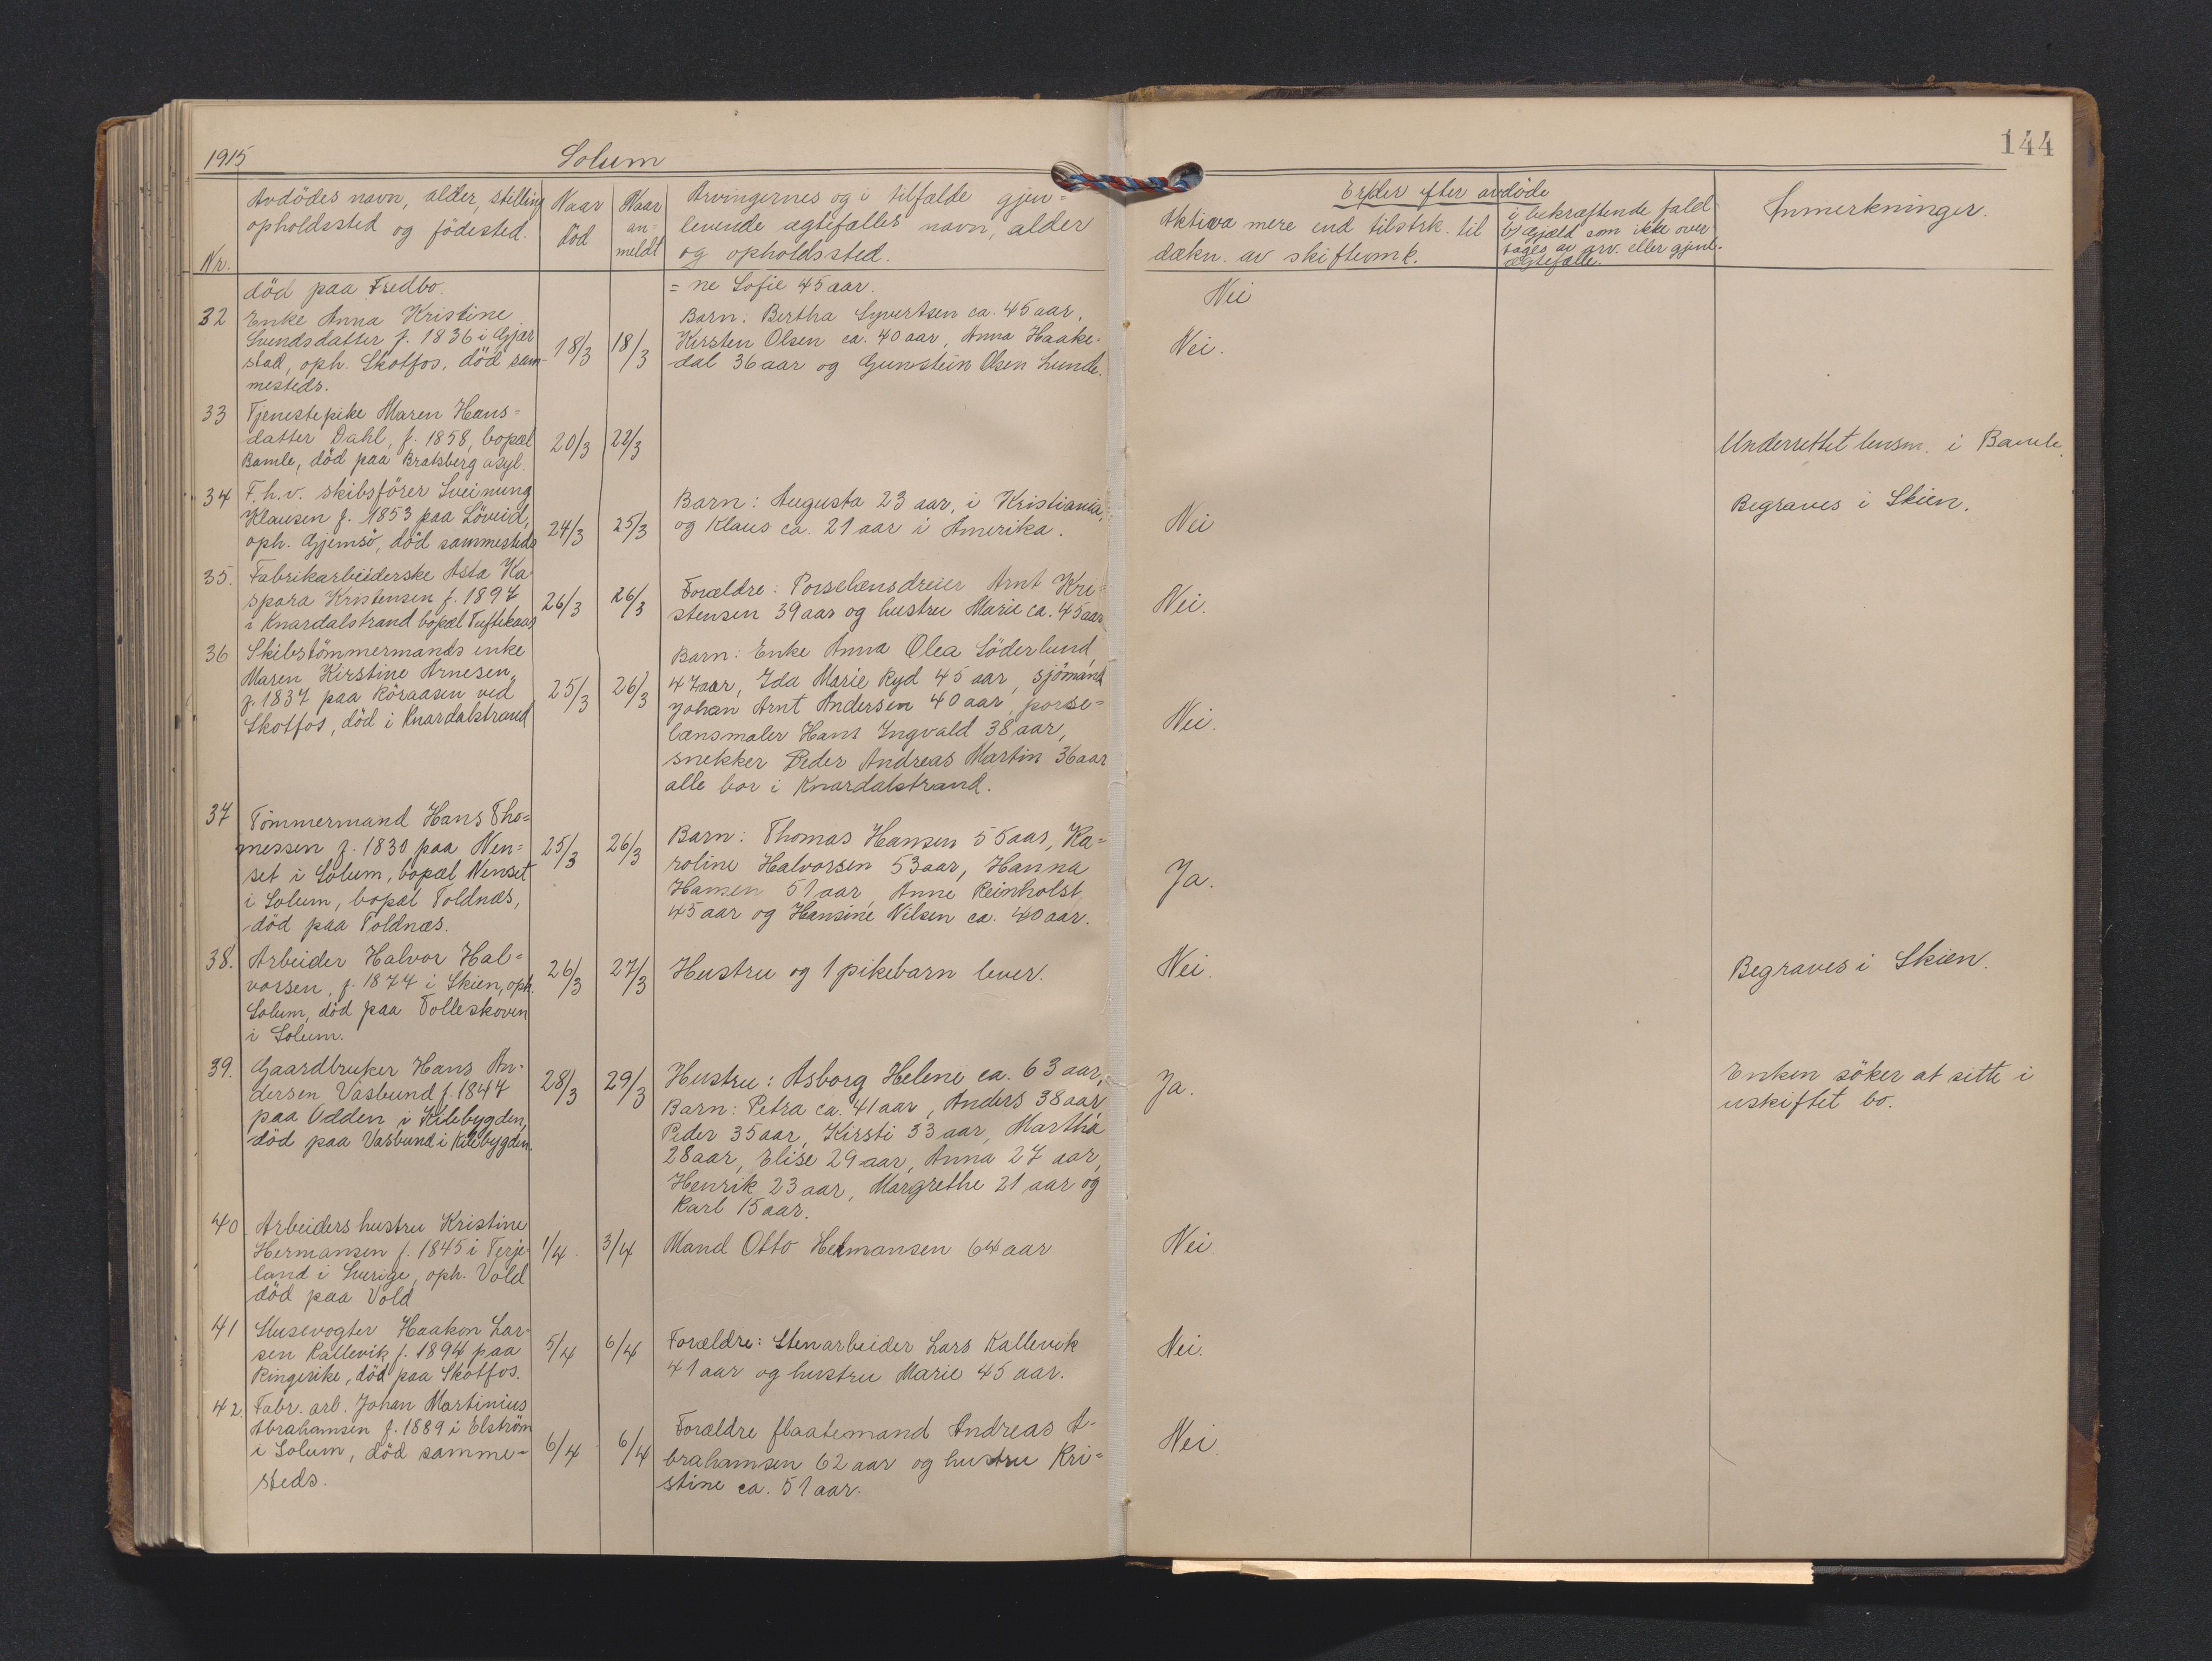 144
1915
Solum
Nr.
Avdödes navn, alder, stilling
opholdssted og födested.
Naar
död
Naar
an-
meldt
Arvingernes og i tilfælde gjen-
levende ægtefælles navn, alder
og opholdssted.
Er der efter avdöde
Aktiva mere end tilstrk. til
dækn. av skifteomk.
i bekræftende fald
b) Gjæld som ikke over
tages av arv. eller gjenl.
ægtefælle.
Anmerkninger.
död paa Fredbo.
= ne Sofie 45 aar.
Nei
32
Enke Anna Kristine
Svendsdatter f. 1836 i Gjer
stad, oph. Skotfos, död sam-
mesteds.
18/3
18/3
Barn: Bertha Syvertsen ca. 45 aar,
Kirsten Olsen ca. 40 aar, Anna Haake-
dal 36 aar og Gunstein Olsen Lunde.
Nei.
33
Tjenestepike Maren Hans=
datter Dahl, f. 1858, bopæl
Bamle, död paa Bratsberg asyl.
20/3
22/3
Underrettet lensm. i Bamle.
34
F.h.v. skibsförer Sveinung
Klausen f. 1853 paa Löveid,
oph. Gjemsö, död sammesteds
24/3
25/3
Barn: Augusta 23 aar, i Kristiania,
og Klaus ca. 21 aar i Amerika.
Nei
Begraves i Skien.
35.
Fabrikarbeiderske Asta Ka
spara Kristensen f. 1897
i Knardalstrand bopæl Tuftekaas
26/3
26/3
Forældre: Porselænsdreier Arnt Kri=
stensen 39 aar og hustru Marie ca. 45 aar
Nei.
36
Skibstömmermands enke
Maren Kirstine Arnesen,
f. 1837 paa Röraasen ved
Skotfos, död i Knardalstrand
25/3
26/3
Barn: Enke Anna Olea Söderlund
47 aar, Ida Marie Ryd 45 aar, sjömand
Johan Arnt Andersen 40 aar, porse=
lænsmaler Hans Ingvald 38 aar,
snekker Peder Andreas Martin 36 aar
alle bor i Knardalstrand.
Nei.
37
Tömmermand Hans Tho=
messen f. 1830 paa Nen=
set i Solum, bopæl Nenset
i Solum, bopæl Toldnæs,
död paa Toldnæs.
25/3
26/3
Barn: Thomas Hansen 55 aar, Ka=
roline Halvorsen 53 aar, Hanna
Hansen 51 aar, Anne Reinholst
45 aar og Hansine Nilsen ca. 40 aar.
Ja.
38.
Arbeider Halvor Hal=
vorsen, f. 1874 i Skien, oph.
Solum, död paa Tolleskoven
i Solum.
26/3
27/3
Hustru og 1 pikebarn lever.
Nei.
Begraves i Skien.
39.
Gaardbruker Hans An-
dersen Vasbund f. 1847
paa Odden i Kilebygden,
död paa Vasbund i Kilebygden.
28/3
29/3
Hustru: Asborg Helene ca. 63 aar,
Barn: Petra ca. 41 aar, Anders 38 aar,
Peder 35 aar, Kirsti 33 aar, Martha
28 aar, Elise 29 aar, Anna 27 aar,
Henrik 23 aar, Margrethe 21 aar og
Karl 15 aar.
Ja.
Enken söker at sitte i
uskiftet bo.
40
Arbeiders hustru Kristine
Hermansen f. 1845 i Terje-
land i Sverige, oph. Vold
död paa Vold
1/4
3/4
Mand Otto Hermansen 64 aar
Nei.
41
Slusevogter Haakon Lar-
sen Kallevik f. 1894 paa
Ringerike, död paa Skotfos.
5/4
6/4
Forældre: Stenarbeider Lars Kallevik
41 aar og hustru Marie 45 aar.
Nei.
42.
Fabr. arb. Johan Martinius
Abrahamsen f. 1889 i Elström
i Solum, död samme-
steds.
6/4
6/4
Forældre flaatemand Andreas A-
brahamsen 62 aar og hustru Kri=
stine ca. 51 aar.
Nei.